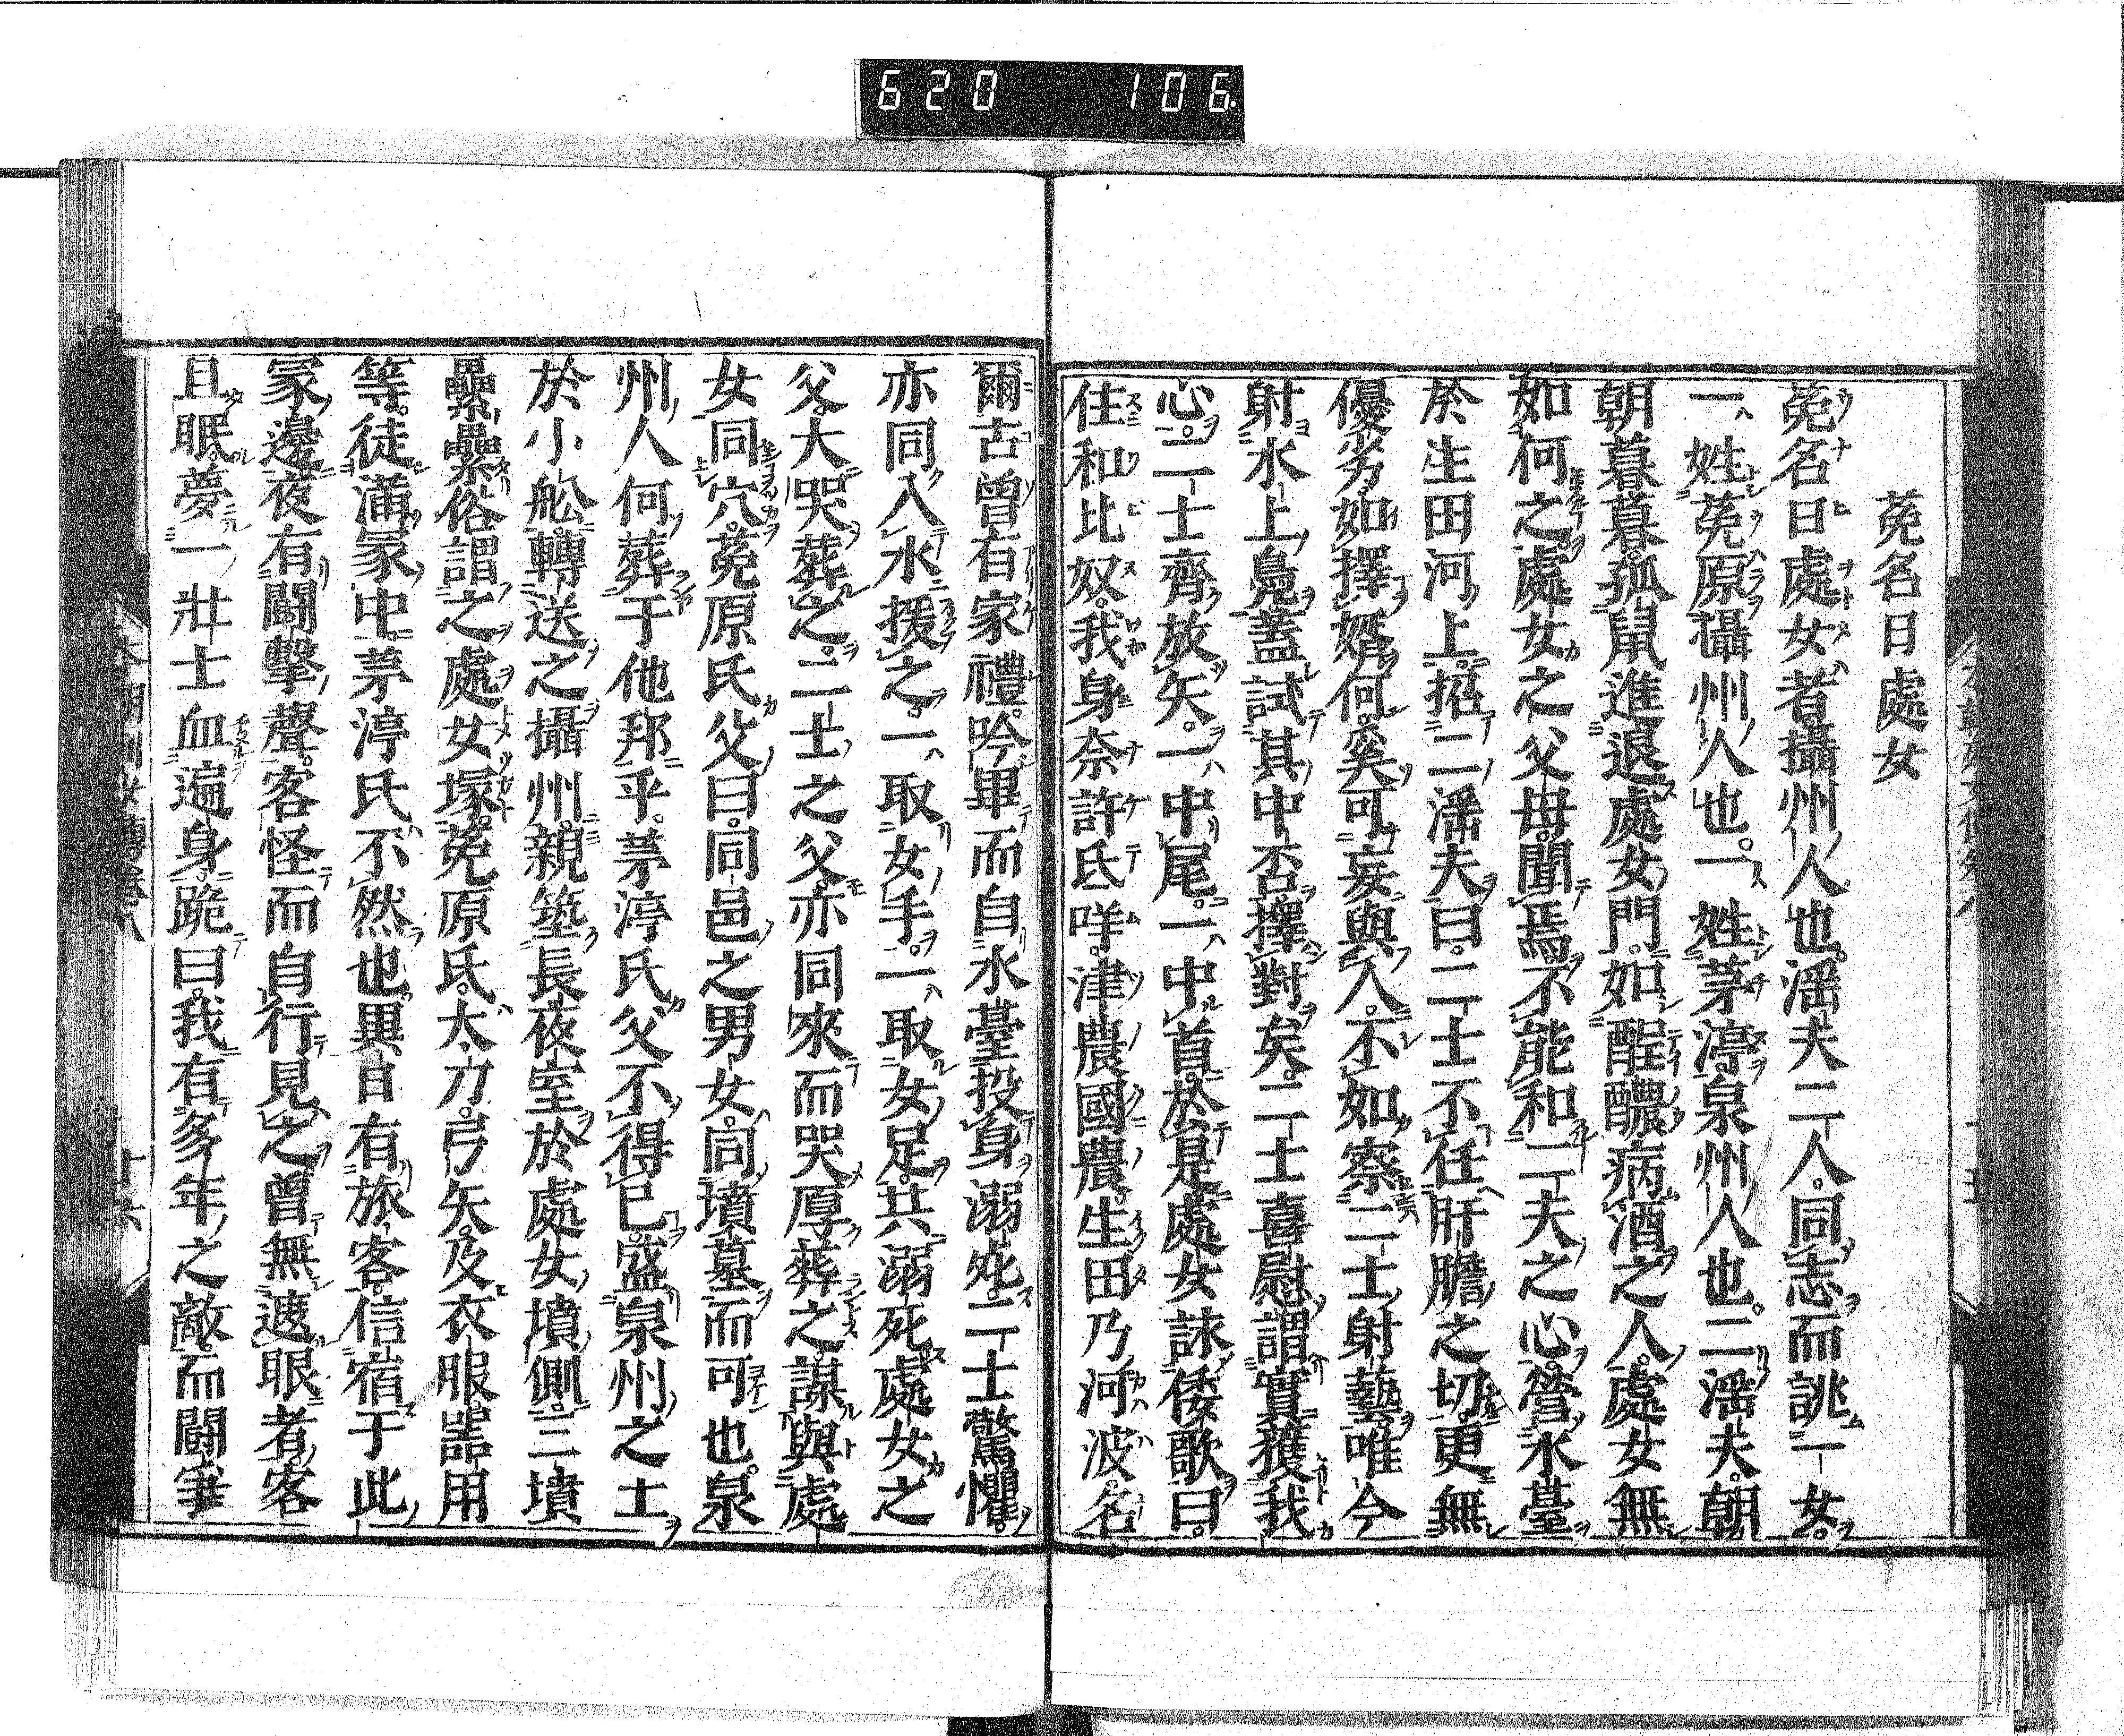 620 106.
莬名日處女
莬名日處女者攝州人也。淫夫二人。同志而誂一女。
一姓莬原攝州人也。一姓茅渟泉州人也。二淫夫。朝
朝暮暮。孤鼠進退處女門。如酲醲病酒之人。處女無
如何之。處女之父母。聞焉不能和二夫之心。營水臺
於生田河上。招二淫夫曰。二士不任肝膽之切。更無
優劣。如擇婿何。奚可妄與人。不如察二士射藝。唯今
射水上鳧。蓋試其中否擇對矣。二士喜慰。謂實獲我
心。二士齊放矢。一中尾。一中首。於是處女詠倭歌曰。
住和比奴。我身奈許氐咩。津農國農。生田乃河波。名
爾古曾有家禮。吟畢而自水臺投身溺死。二士驚懼。
亦同入水援之。一取女手。一取女足。共溺死。處女之
父。大哭葬之。二士之父。亦同來而哭。厚葬之。謀與處
女同穴。莬原氏父曰。同邑之男女。同墳墓而可也。泉
州人何葬于他邦乎。茅渟氏父不得已。盛泉州之土
於小舩。轉送之攝州。親築長夜室於處女墳側。三墳
纍纍。俗謂之處女塚。莬原氏。太刀。弓矢。及衣服噐用
等。徒滿冢中。茅渟氏不然也。異日有旅客。信宿于此
冢邊。夜有闘擊聲。客怪而自行見之。曾無遮眼者。客
且眠。夢一壯士血遍身。跪曰。我有多年之敵。而闘爭